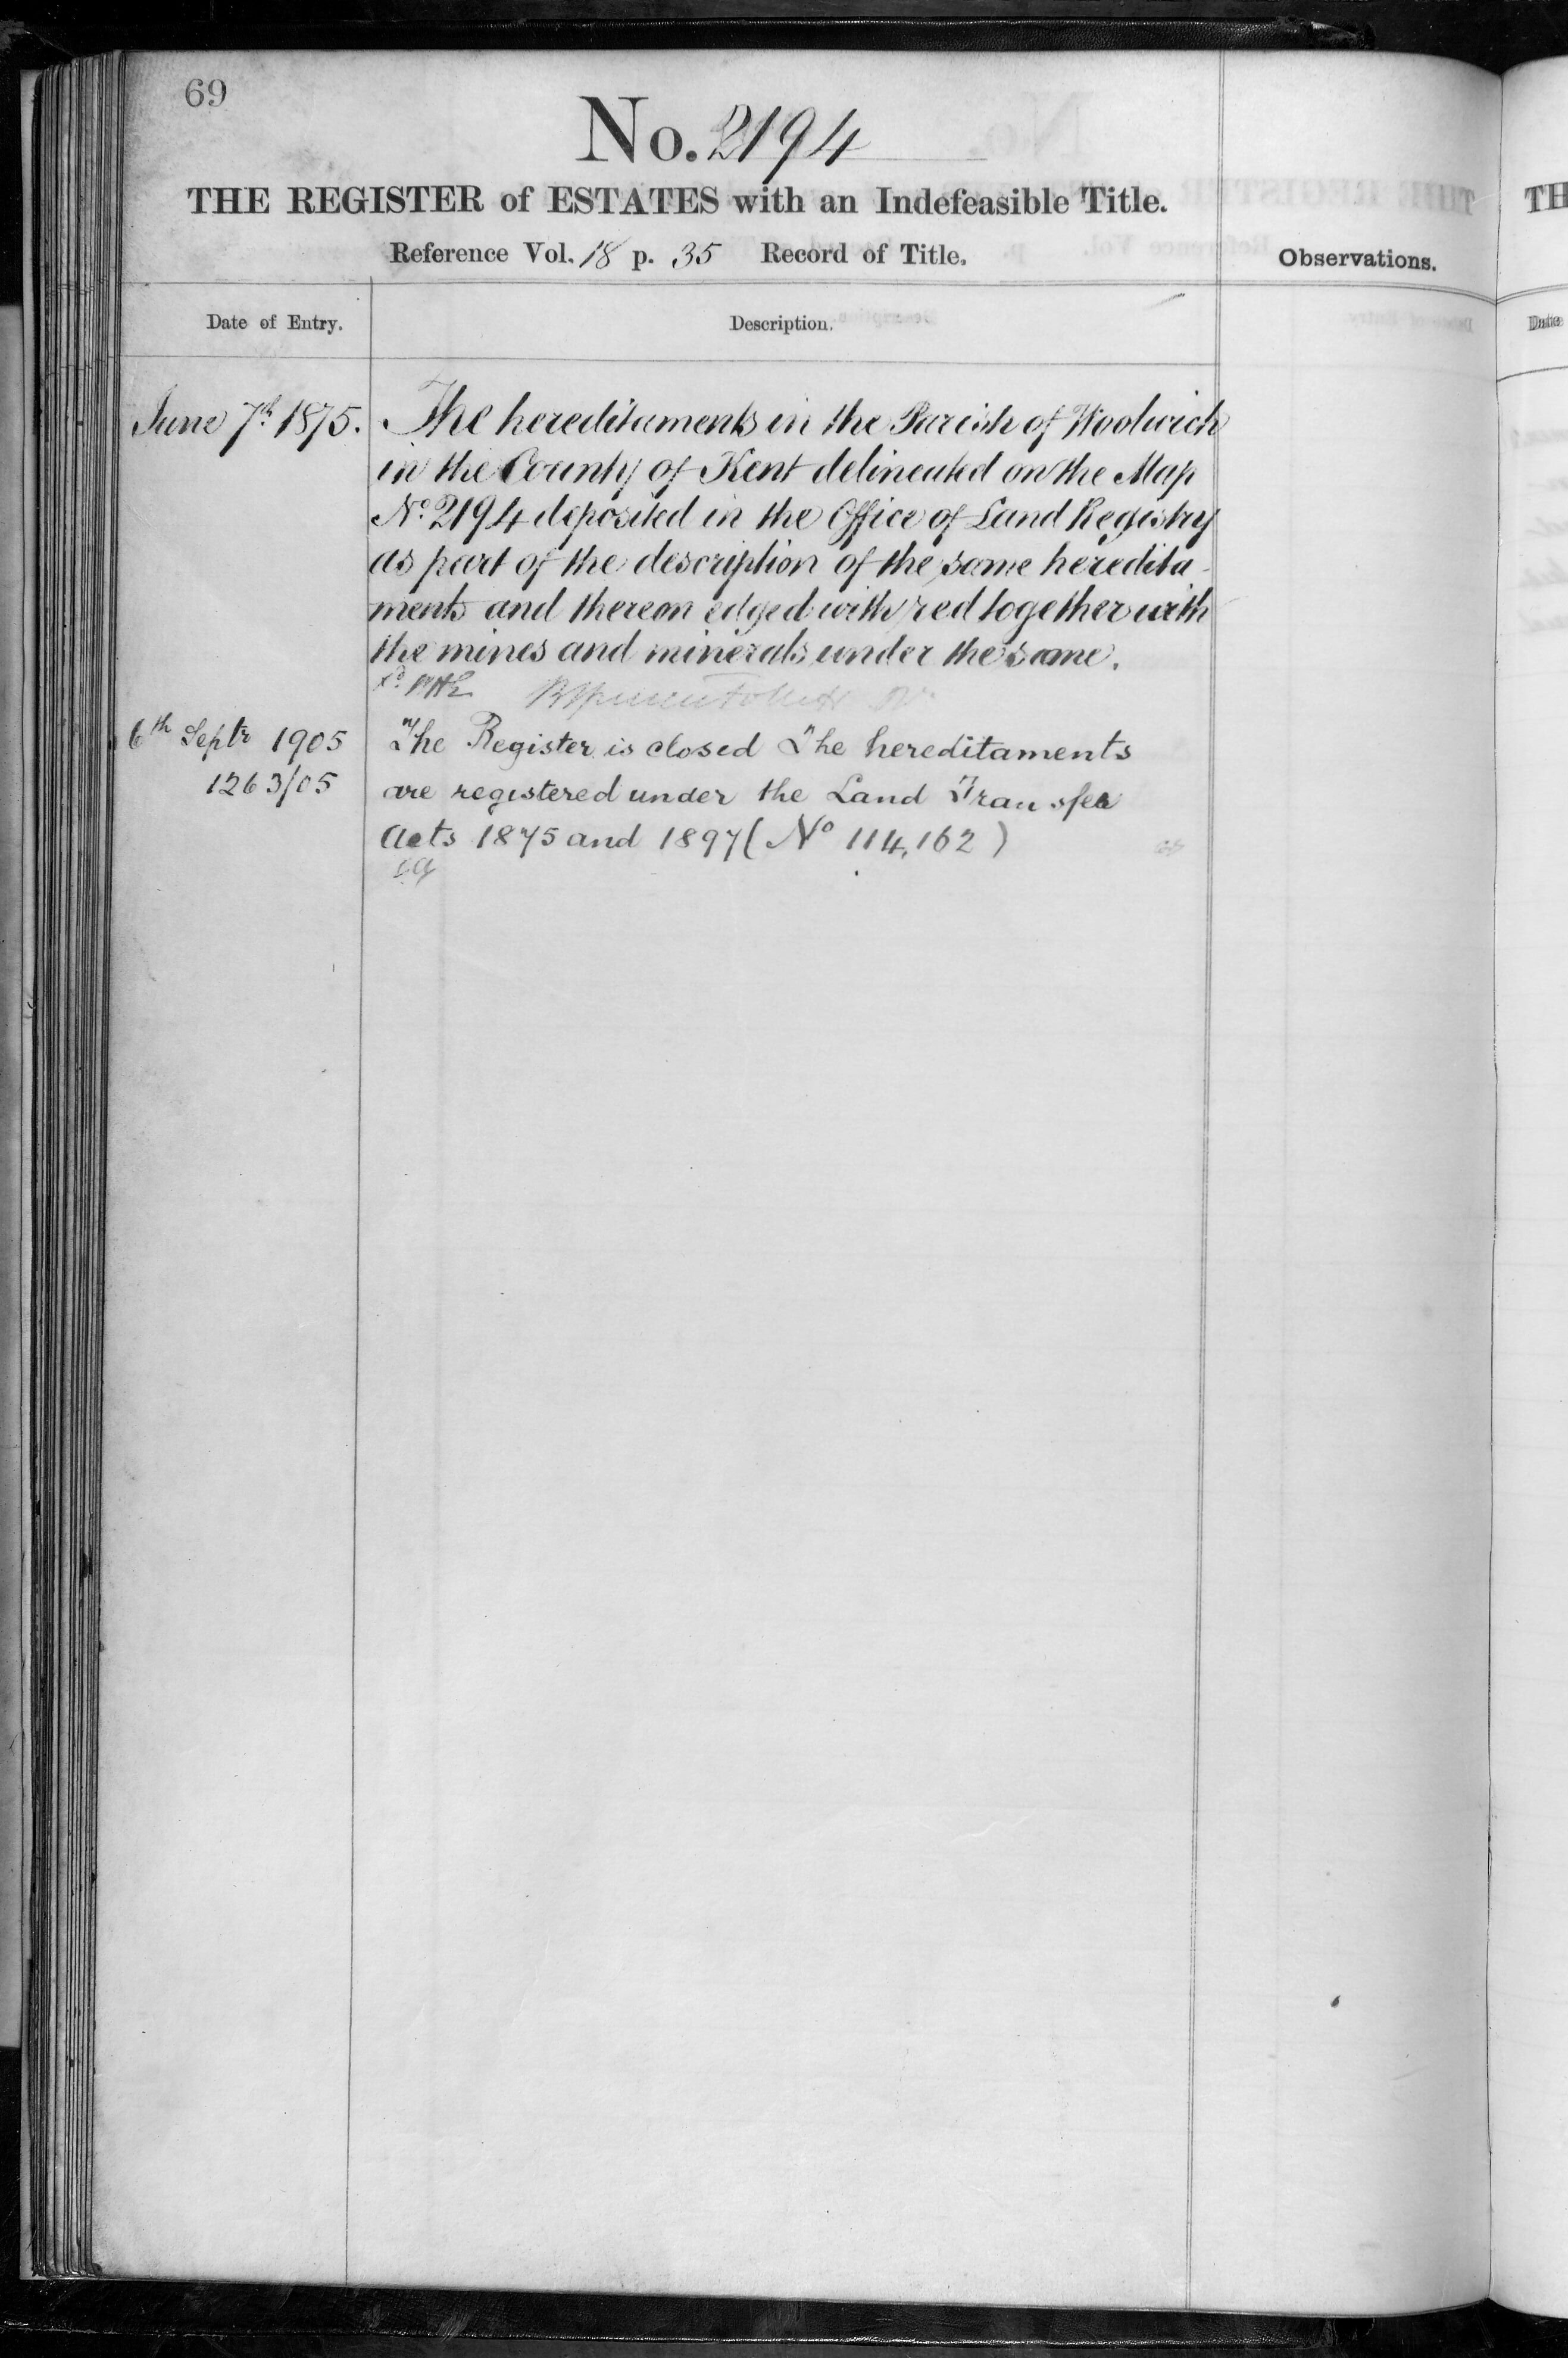 69
No. 2194
THE REGISTER of ESTATES with an Indefeasible Title.
Reference Vol. 18 p. 35 Record of Title.
Observations.
Date of Entry.
Description.
June 7th 1875.
The hereditaments in the Parish of Woolwich
in the County of Kent delineated on the Map
No. 2194 deposited in the Office of Land Registry
as part of the description of the same heredita-
ments and thereon edged with red together with
the mines and minerals under the same.
6th Septr 1905
1263/05
The Register is closed The hereditaments
are registered under the Land Transfer
Acts 1875 and 1897 (No 114,162)
TH
Date